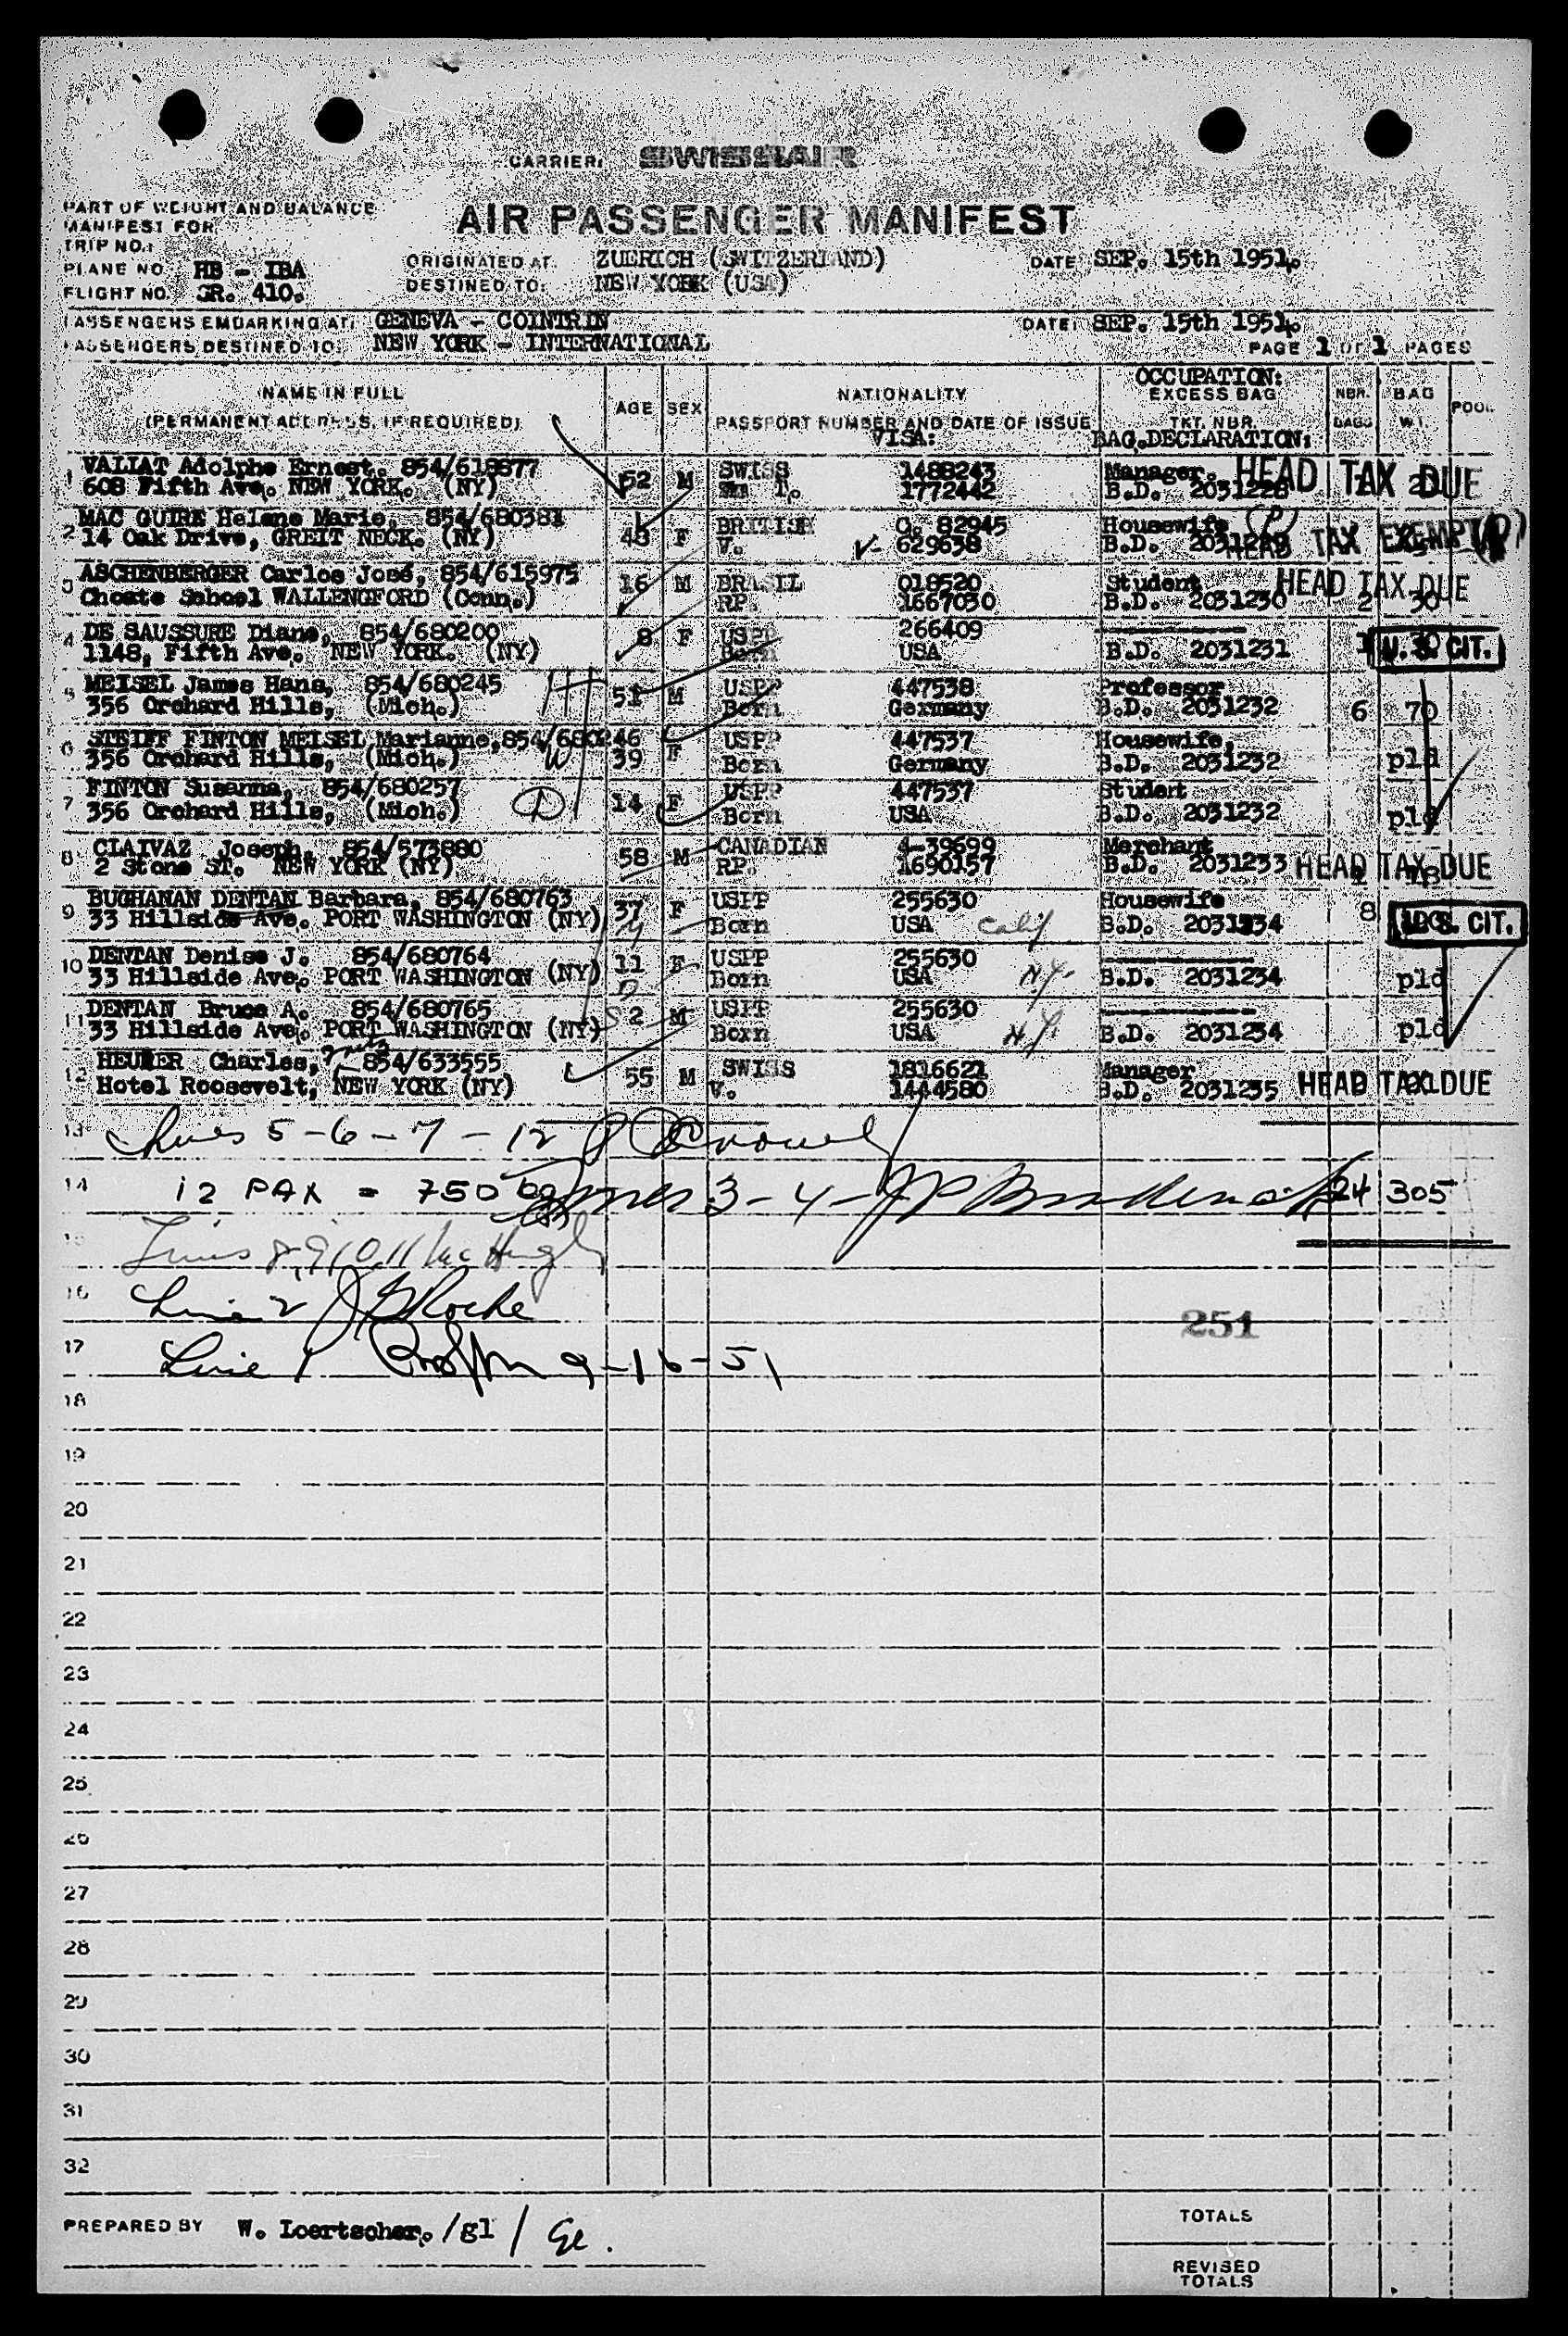 CARRIER: SWISSAIR
PART OF WEIGHT AND BALANCE
MANIFEST FOR
AIR PASSENGER MANIFEST
TRIP NO.:
PLANE NO. HB - IBA
ORIGINATED AT: ZUERICH (SWITZERLAND)
DATE: SEP. 15th 1951.
FLIGHT NO. SR. 410.
DESTINED TO: NEW YORK (USA)
PASSENGERS EMBARKING AT: GENEVA - COINTRIN
DATE: SEP. 15th 1951.
PASSENGERS DESTINED TO: NEW YORK - INTERNATIONAL
PAGE 1 OF 1 PAGES
NAME IN FULL
(PERMANENT ADDRESS, IF REQUIRED)
AGE
SEX
NATIONALITY
PASSPORT NUMBER AND DATE OF ISSUE
VISA:
OCCUPATION:
EXCESS BAG
TKT. NBR.
BAG.DECLARATION:
NBR. BAGS
BAG WT.
POOL
1 VALIAT Adolphe Ernest. 854/618877 52 M SWISS 1488243 Manager. HEAD TAX DUE
608 Fifth Ave. NEW YORK. (NY) 1772442 B.D. 2031228
2 MAC GUIRE Helene Marie, 854/680381 48 F BRITISH C. 82945 Housewife (P)
14 Oak Drive, GREIT NECK. (NY) V. 629638 B.D. 2031229 HEAD TAX EXEMPT (P)
3 ASCHENBERGER Carlos José, 854/615975 16 M BRASIL 018520 Student HEAD TAX DUE
Choate School WALLENGFORD (Conn.) RP. 1667030 B.D. 2031230 2 30
4 DE SAUSSURE Diane, 854/680200 8 F USPP 266409
1148, Fifth Ave. NEW YORK. (NY) Born USA B.D. 2031231 1 U. S. CIT.
5 MEISEL James Hans, 854/680245 H 51 M USPP 447538 Professor
356 Orchard Hills, (Mich.) Born Germany B.D. 2031232 6 70
6 STEIFF FINTON MEISEL Marianne, 854/680246 F USPP 447537 Housewife,
356 Orchard Hills, (Mich.) W 39 Born Germany B.D. 2031232 pld
7 FINTON Susanna, 854/680257 D 14 F USPP 447537 Student
356 Orchard Hills, (Mich.) Born USA B.D. 2031232 pld
8 CLAIVAZ Joseph, 854/573880 58 M CANADIAN 4-39699 Merchant
2 Stone ST. NEW YORK (NY) RP. 1690157 B.D. 2031233 HEAD TAX DUE
9 BUGHANAN DENTAN Barbara, 854/680763 37 F USPP 255630 Housewife
33 Hillside Ave. PORT WASHINGTON (NY) Born USA Calif B.D. 2031234 8 U. S. CIT.
10 DENTAN Denise J. 854/680764 11 F USPP 255630
33 Hillside Ave. PORT WASHINGTON (NY) D Born USA N.Y. B.D. 2031234 pld
11 DENTAN Bruce A. 854/680765 S 2 M USPP 255630
33 Hillside Ave. PORT WASHINGTON (NY) Born USA N.Y. B.D. 2031234 pld
12 HEURER Charles, Fritz 854/633555 55 M SWISS 1816621 Manager
Hotel Roosevelt, NEW YORK (NY) V. 1444580 B.D. 2031235 HEAD TAX DUE
13 Lines 5-6-7-12
14 12 PAX = 750 kg Lines 3-4- 24 305
15 Lines 8,9,10,11 McHugh
16 Line 2 Roche
251
17 Line 1 9-16-51
18
19
20
21
22
23
24
25
26
27
28
29
30
31
32
PREPARED BY W. Loertscher. /gl /
TOTALS
REVISED
TOTALS